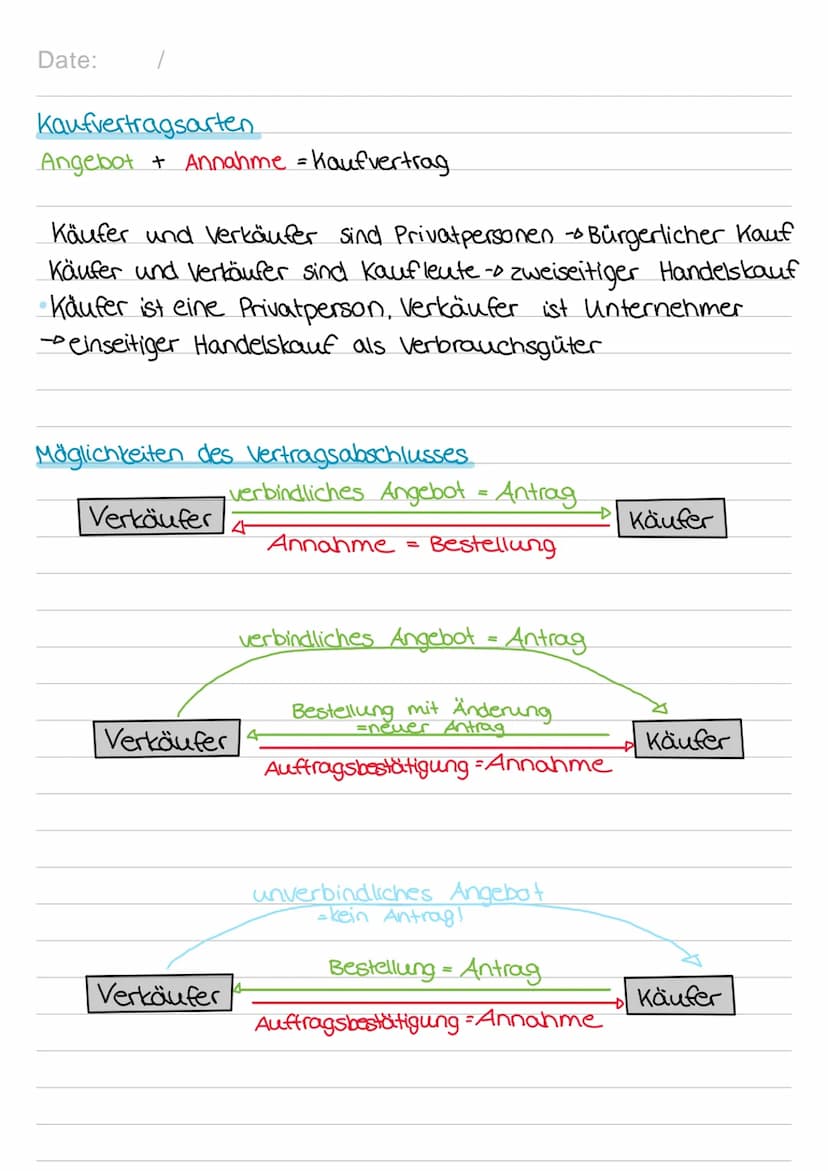 Date: /
Kaufvertragsarten
Angebot + Annahme = Kaufvertrag
Käufer und Verkäufer sind Privatpersonen → Bürgerlicher Kauf
Käufer und Verkäufer sind Kaufleute → zweiseitiger Handelskauf
• Käufer ist eine Privatperson, Verkäufer ist Unternehmer
→ einseitiger Handelskauf als Verbrauchsgüter
Möglichkeiten des Vertragsabschlusses
verbindliches Angebot = Antrag
Verkäufer
Käufer
Annahme = Bestellung
verbindliches Angebot = Antrag
Bestellung mit Änderung
=neuer Antrag
Verkäufer
Käufer
Auftragsbestätigung = Annahme
unverbindliches Angebot
=kein Antrag!
Bestellung = Antrag
Verkäufer
Käufer
Auftragsbestätigung = Annahme